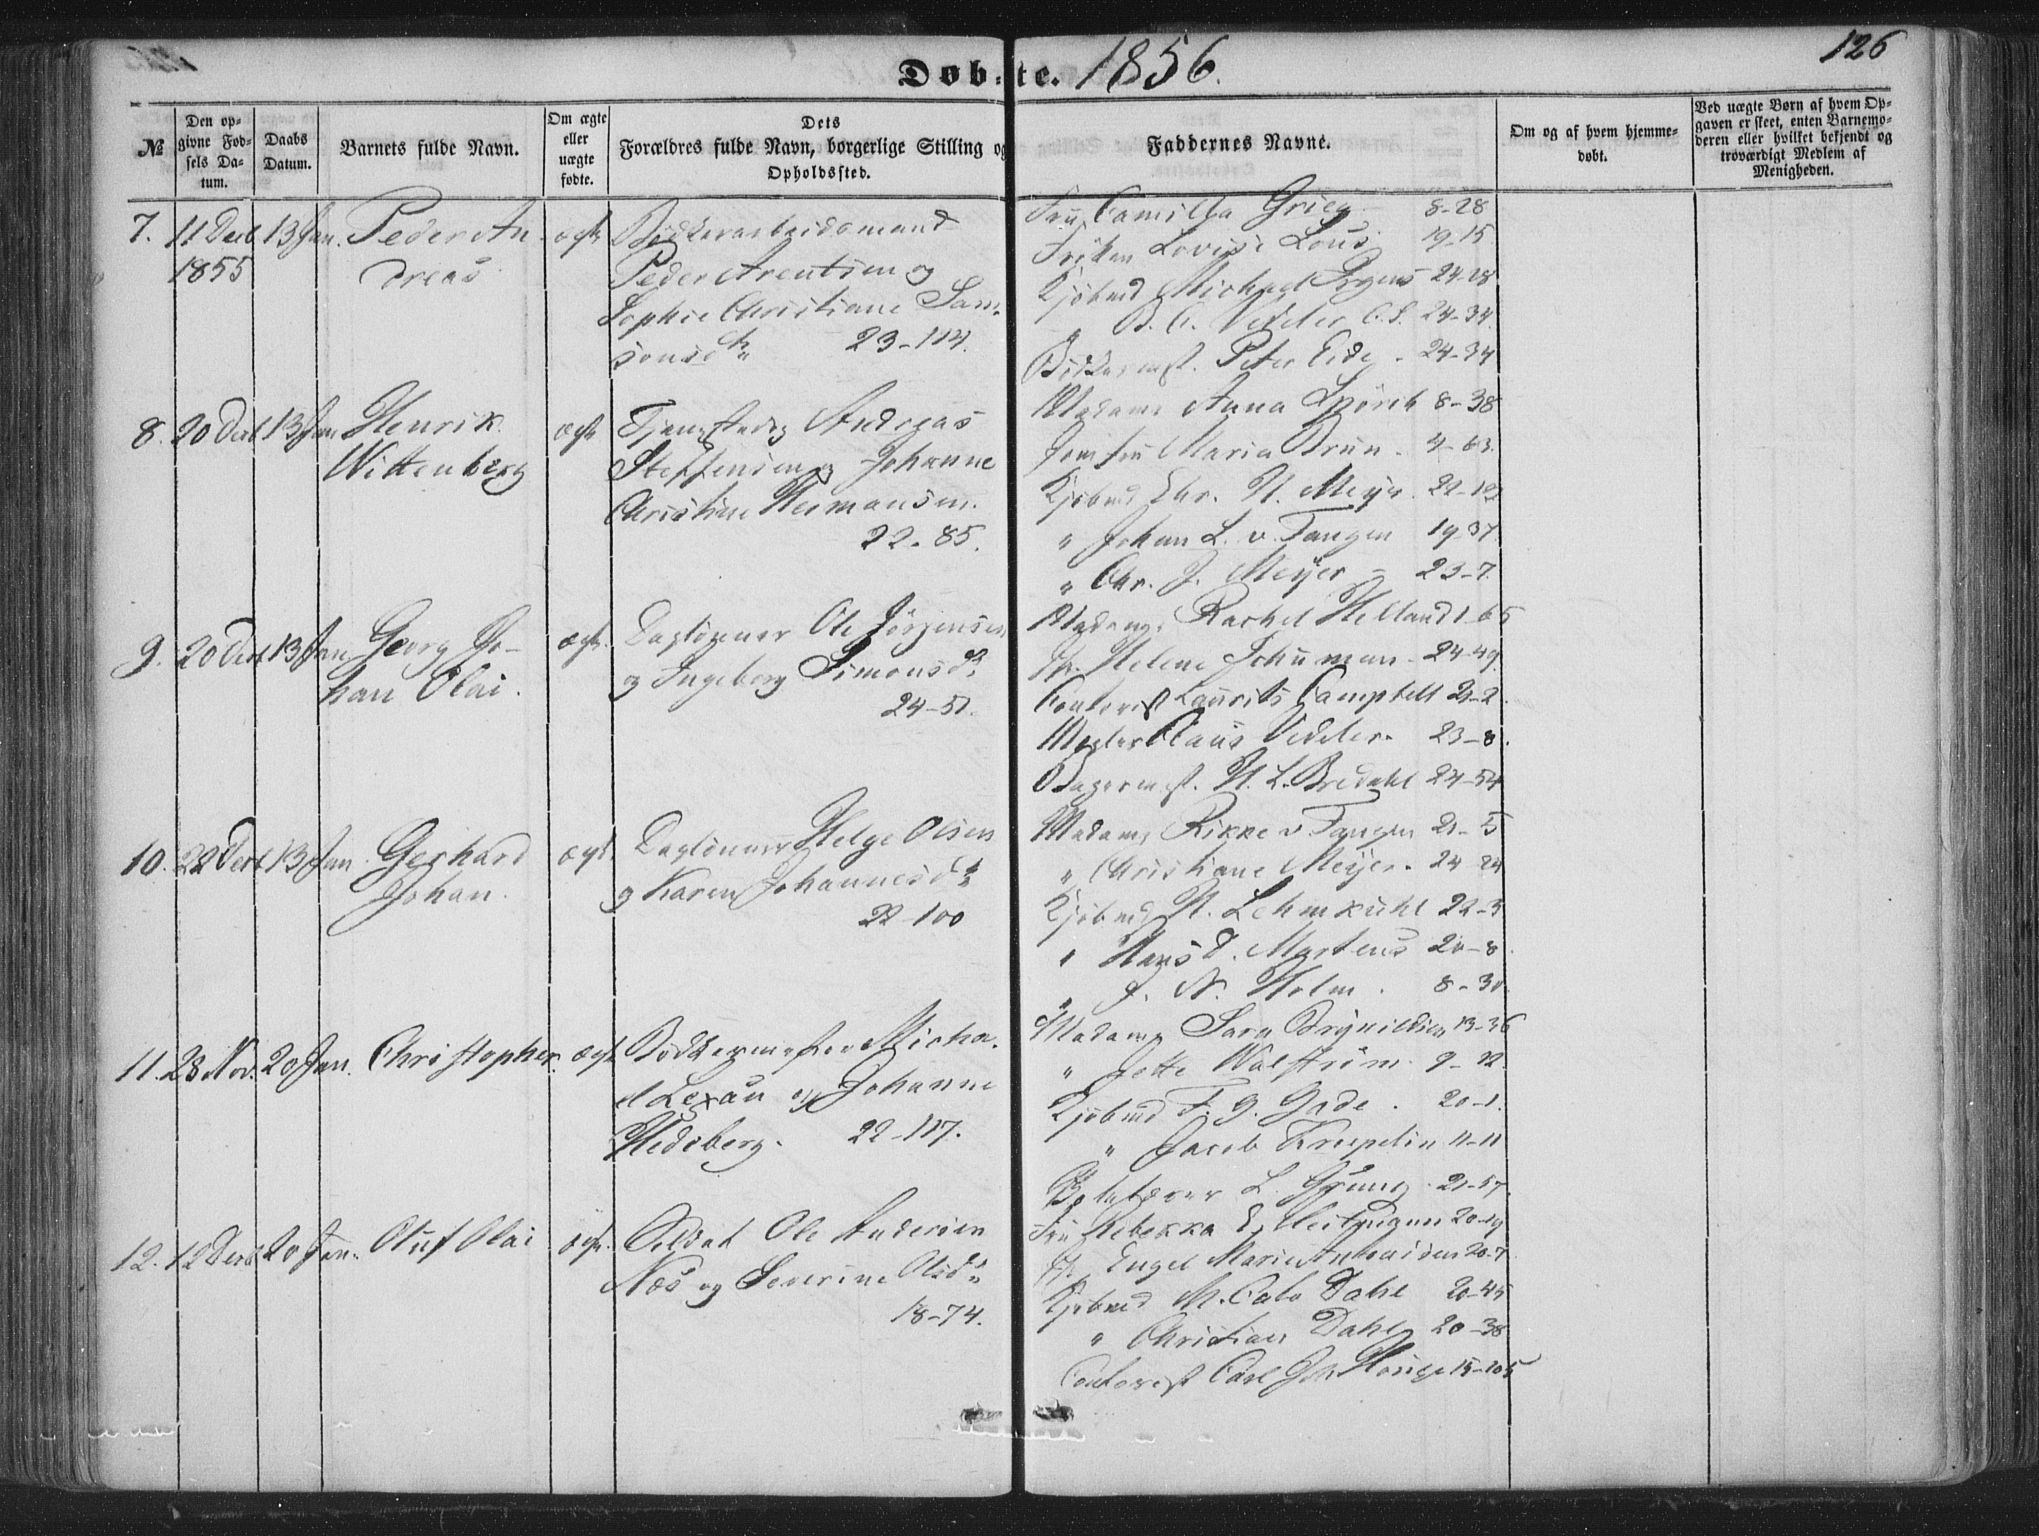 126
Døb-te. 1856.
№
Den op-
givne Fød-
sels Da-
tum.
Daabs
Datum.
Barnets fulde Navn.
Om ægte
eller
uægte
fødte.
Dets
Forældres fulde Navn, borgerlige Stilling og
Opholdssted.
Faddernes Navne.
Om og af hvem hjemme-
døbt.
Ved uægte Børn af hvem Op-
gaven er skeet, enten Barnemo-
deren eller hvilket bekjendt og
troværdigt Medlem af
Menigheden.
7. 11 Decb 13 Jan. Peder An- ægte Bødkerarbeidsmand
1855 dreas Peder Arentsen og
Sophie Christiane Sam-
sonsdtr 23-114.
Fru Camilla Grieg 8-28
Frøken Lovise Lous 19-15
Kjøbmd Michael 24-28
" B. C. Vedeler C.S. 24-34.
Bødkermst. Peter Eide - 24-34
8. 20 Decb 13 Jan Henrik ægte Andreas
Wittenberg Steffensen og Johanne
Christine Hermansen.
22-85.
Madame Anna Spörck 8-38
Jomfru Maria Brun - 4-63.
Kjøbmd Chr. H. Meyer
" Johan L. v. Tangen 19-37
" Chr. J. Meyer - 23-7.
9. 20 Decb 13 Jan Georg Jo- ægte. Daglønner Ole Jörgensen
han Olai. og Ingeborg Simonsdtr
24-51.
Madame Rachel Helland 1-65
Helene Schuman - 24-49.
Contorist Laurits Campbell 21-2.
Mægler Claus Vedeler. 23-8.
Bagermst. H. L. Bredahl 24-54
10. 22 Decb 13 Jan. Gerhard ægte Daglønner Helge Olsen
Johan. og Karen Johannesdtr
22-100
Madame Rikke v Tangen 21-5
" Christiane Meyer. 24-24
Kjøbmd H. Lehmkuhl 22-3
" Hans d. Martens 20-8.
" J. N. Holm. 8-30.
11. 28 Nov. 20 Jan. Christopher. ægte Bødkermester Micha-
el Lexau og Johanne
Hedeberg. 22-117.
Madame Sara Brynildsen 13-36
" Jette Walström. 9-12.
Kjøbmd F. G. Gade. 20-1.
" Jacob Kroepelin 11-11
L. Grung. 21-57.
12. 12 Decb 20 Jan. Oluf Olai ægte. Soldat Ole Andersen
Næs og Severine Olsdtr
18-74.
Fru Rebekka 20-19
Engel Marie 20-7.
Kjøbmd M. Dahl 20-45
" Christian Dahl 20-38
Contorist Carl Joh 15-105